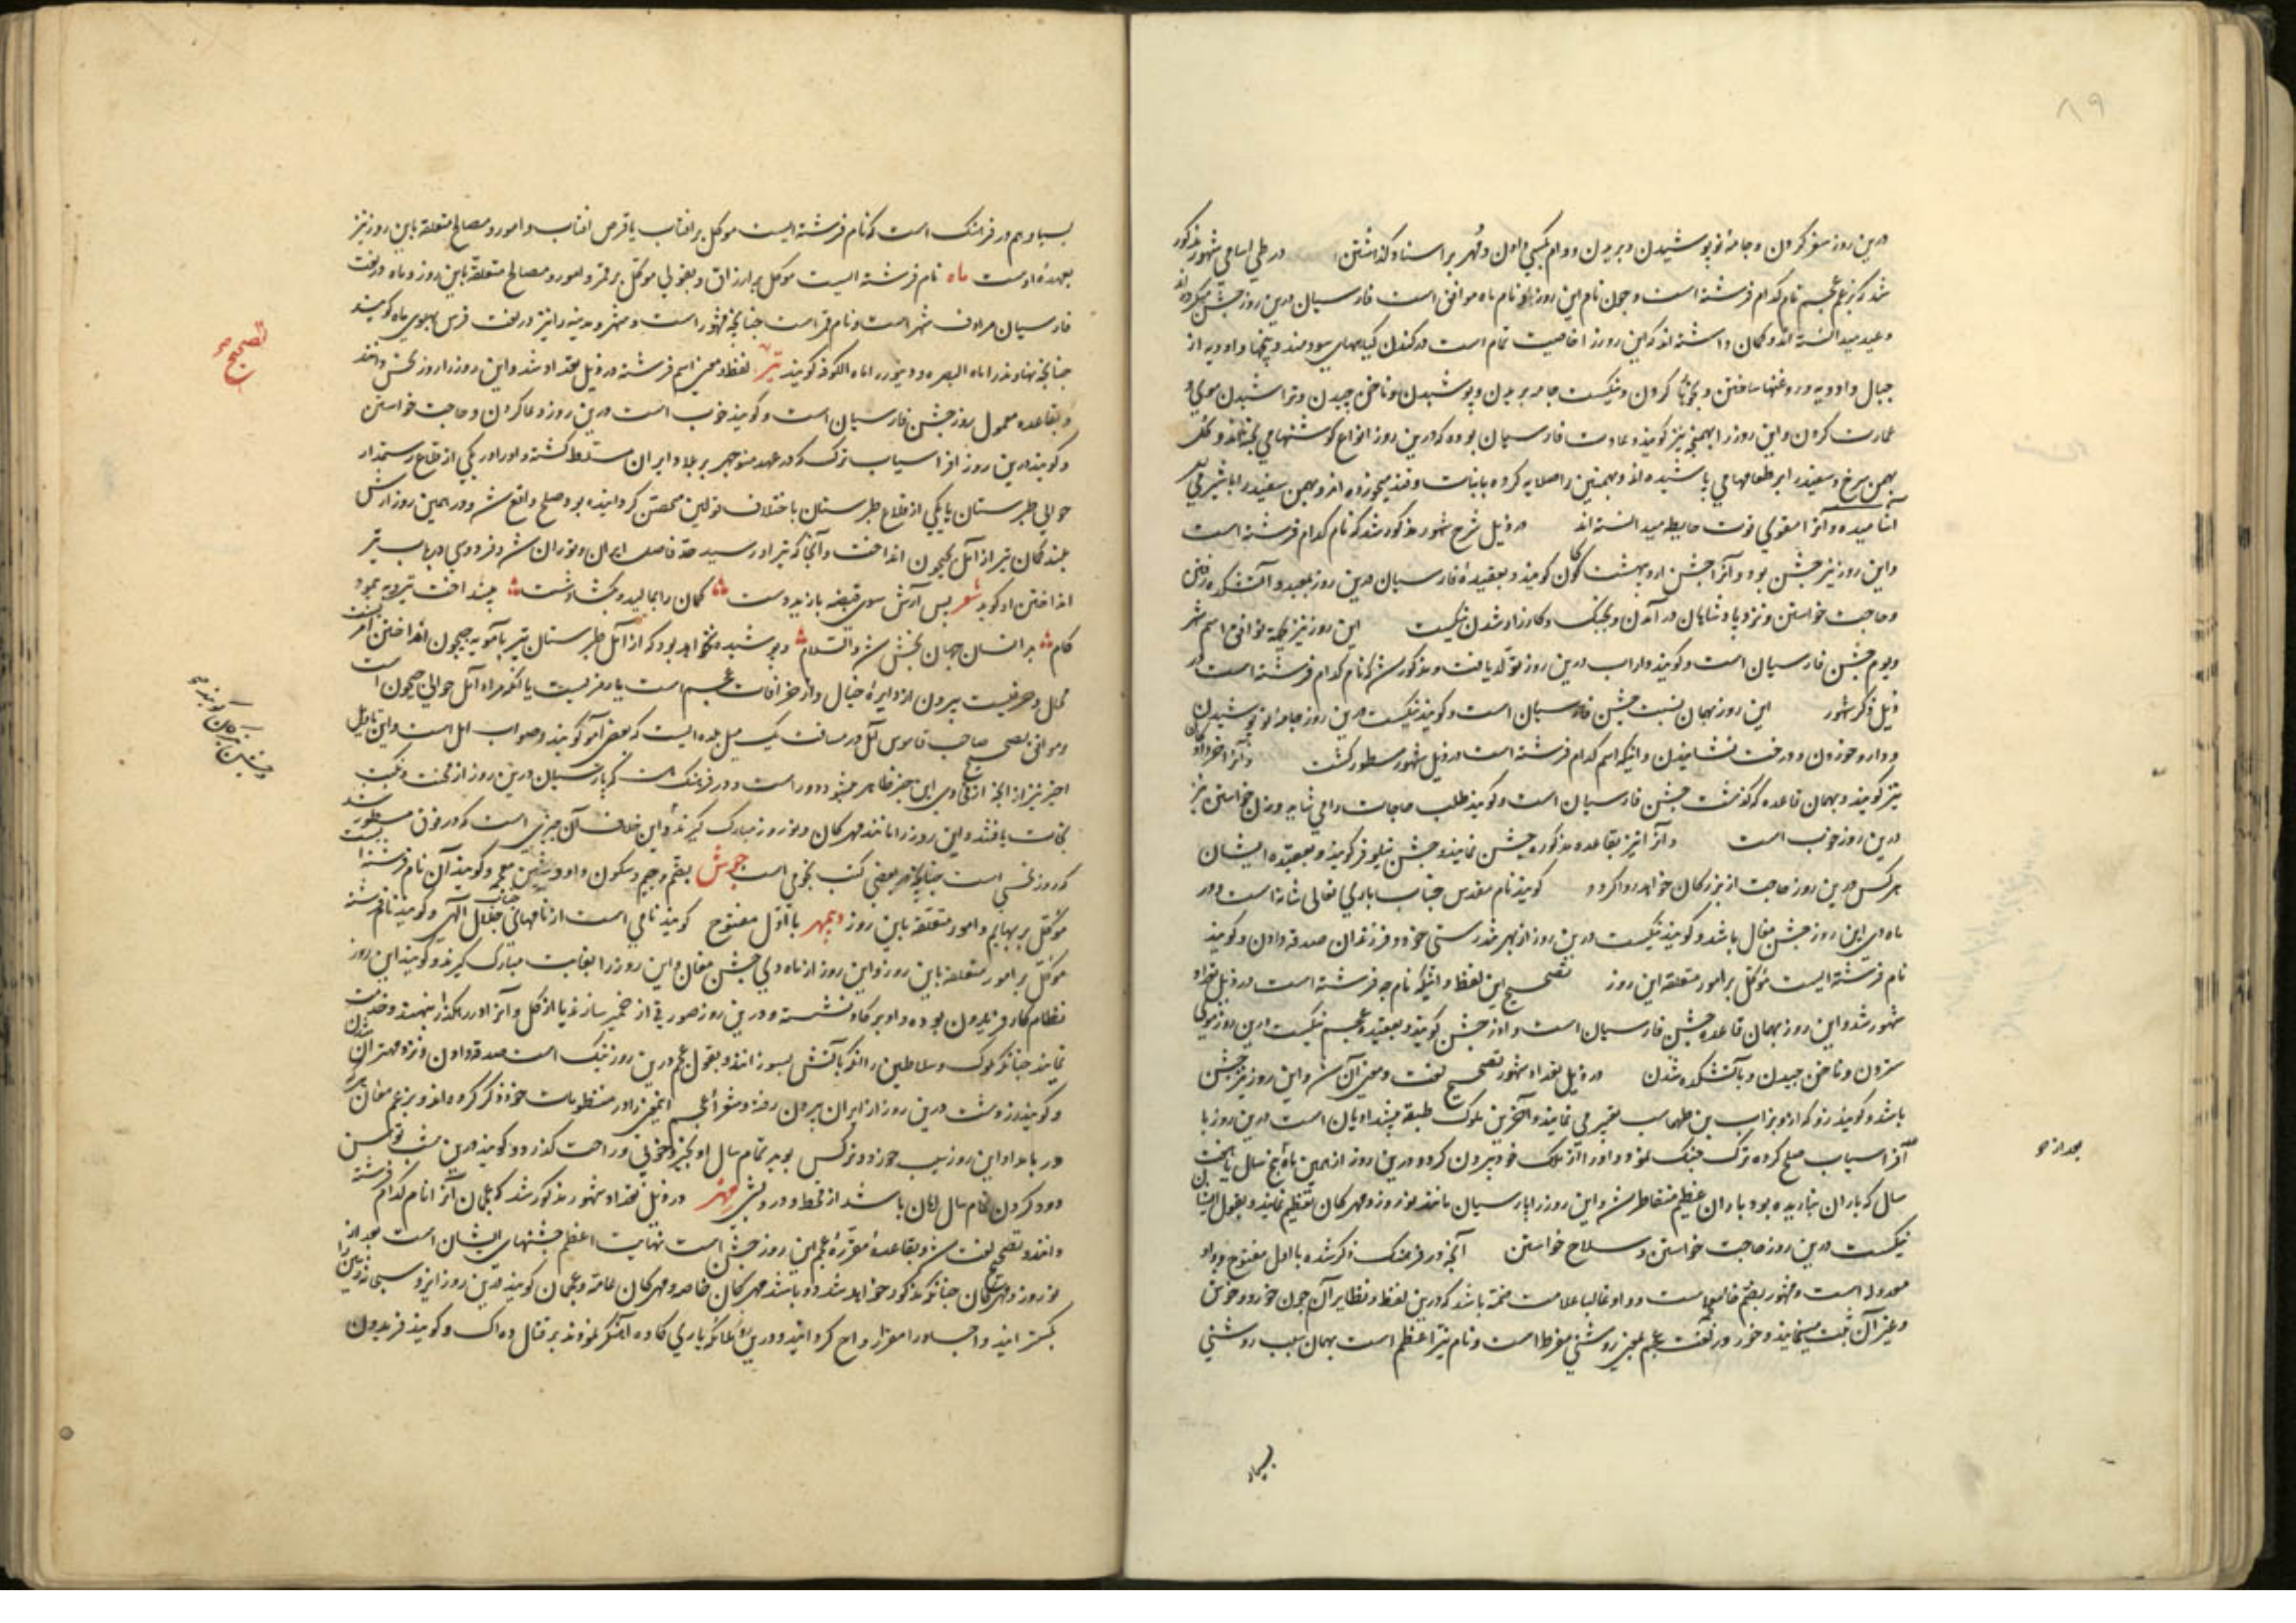 ۸۹
درین روز سفر کردن و جامهٔ نو پوشیدن و بریدن و وام بکسی دادن و مهر بر اسناد گذاشتن در طی اسامی شهور مذکور
شد که بزعم عجم نام کدام فرشته است و چون نام این روز با نام ماه موافق است فارسیان درین روز جشن میکرده‌اند
و عید میدانسته‌اند و گمان داشته‌اند که این روز را خاصیت تمام است در کندن گیاههای سودمند و بیخها و ادویه از
جبال و ادویه و روغنها ساختن و بخورها کردن و نیکست جامه بریدن و پوشیدن و ناخن چیدن و تراشیدن موی و
عمارت کردن و این روز را بهمنجنه نیز گویند و عادت فارسیان بوده که درین روز انواع گوشتها می‌پخته‌اند و گل
بهمن سرخ و سفید بر طعامها می‌پاشیده‌اند و بهمنین را صلایه کرده با نبات و قند میخورده‌اند و بهمن سفید را با شیر می
آشامیده و آنرا مقوی قوت حافظه میدانسته‌اند در ذیل شرح شهور مذکور شد که نام کدام فرشته است
و این روز نیز جشن بود و آنرا جشن اردیبهشت گان گویند و بعقیدهٔ فارسیان درین روز بمعبد و آتشکده رفتن
و حاجت خواستن و نزد پادشاهان در آمدن و بجنگ و کارزار شدن نیکست این روز نیز بعلة توافق اسم شهر
و یوم جشن فارسیان است و گویند داراب درین روز تولد یافت و مذکور شد که نام کدام فرشته است در
ذیل ذکر شهور این روز بهمان نسبت جشن فارسیان است و گویند نیکست درین روز جامهٔ نو پوشیدن
و دارو خوردن و درخت نشانیدن و اینکه اسم کدام فرشته است در ذیل شهور مسطور گشت و آنرا خردادگان
نیز گویند و بهمان قاعده که گذشت جشن فارسیان است و گویند طلب حاجات را می‌شاید و زن خواستن نیز
درین روز خوب است و آنرا نیز بقاعده مذکوره جشن نمایند و جشن نیلوفر گویند و بعقیده ایشان
هر کس درین روز حاجت از بزرگان خواهد روا گردد گویند نام مقدس جناب باری تعالی شانه است و در
ماه دی این روز جشن مغان باشد و گویند نیکست درین روز از بهر تندرستی خود و فرزندان صدقه دادن و گویند
نام فرشته ایست مؤکل بر امور متعلقه این روز تصحیح این لفظ و اینکه نام چه فرشته است در ذیل تعداد
شهور شد و این روز بهمان قاعده جشن فارسیان است و آذر جشن گویند و بعقیده عجم نیکست درین روز موی
ستردن و ناخن چیدن و باتشکده شدن در ذیل تعداد شهور تصحیح لغت و معنی آن شد و این روز نیز جشن
باشد و گویند زو که از او بزاب بن طهماسب تعبیر می نمایند و آخرین ملوک طبقه پیشدادیان است درین روز با
افراسیاب صلح کرده ترک جنگ نمود و او را از ملک خود بیرون کرد و درین روز از بهمین ماه پنج سال یا هشت
سال که باران نباریده بود باران عظیم متقاطر شد و این روز را پارسیان مانند نوروز و مهرکان تعظیم نمایند و بقول ایشان
نیکست درین روز حاجت خواستن و سلاح خواستن آنچه در فرهنگ ذکر شده با اول مفتوح و واو
معدوله است و مشهور بضم خاست و واو غالبا علامت ضمه باشد که درین لفظ و نظایر آن چون خورد و خوش
و غیر آن ثبت مینمایند و خور در لغت عجم بمعنی روشنی مفرط است و نام نیر اعظم است بهمان سبب روشنی
بعد از دو
بسیار
بسیار و هم در فرهنگ است که نام فرشته ایست موکل بر افتاب یا قرص افتاب و امور و مصالح متعلقه باین روز نیز
بعهدهٔ اوست ماه نام فرشته ایست موکل بر ارزاق و بقولی موکل بر قمر و امور و مصالح متعلقه باین روز و ماه در لغت
فارسیان مرادف شهر است و نام قمر است چنانچه مشهور است و شهر و مدینه را نیز در لغت فرس پهلوی ماه گویند
چنانچه نهاوند را ماه البصره و دینور را ماه الکوفه گویند تیر لفظا و معنی اسم فرشته در ذیل تعداد شد و این روز را روز نحس دانند
و بقاعده معمول روز جشن فارسیان است و گویند خوب است درین روز دعا کردن و حاجت خواستن
و گویند درین روز افراسیاب ترک که در عهد منوچهر بر بلاد ایران مستلط گشته و او را در یکی از قلاع رستمدار
حوالی طبرستان یا یکی از قلاع طبرستان باختلاف قولین متحصن گردانیده بود صلح واقع شد و در همین روز آرش
بلند کمان تیر از آمل بجیحون انداخت و آنجا که تیر او رسید حد فاصل ایران و توران شد و فردوسی در باب تیر
انداختن او گوید شعر پس آرش سوی قبضه یازید دست کمان را بمالید و بگشاد شست بینداخت تیر و به پیمود
کام بر انسان جهان بخش شد والسلام و پوشیده نخواهد بود که از آمل طبرستان تیر بآمویه جیحون انداختن امر
محال و حرفیست بیرون از دایرهٔ خیال و از خرافات عجم است یا رمزیست یا آنکه مراد آمل حوالی جیحون است
و موافق نص صاحب قاموس آمل در مسافت یک میل بلده ایست که بعضی آمو گویند و صواب امل است و این تاویل
اخیر نیز از انچه از فردوسی این جیز ظاهر میشود دور است و در فرهنگ است که پارسیان درین روز از محنت و نکبت
نجات یافتند و این روز را مانند مهرکان و نوروز مبارک گیرند و این خلاف آن چیزی است که در فوق مسطور شد
که روز نحسی است چنانچه در بعضی کتب نجومی است جوش بضم جیم و سکون واو و شین معجمه گویند آن نام فرشته ایست
موکل بر بهایم و امور متعلقه باین روز دیمهر با اول مفتوح گویند نامی است از نامهای جناب جلال الهی و گویند نام فرشته
موکل بر امور متعلقه باین روز و این روز از ماه دی جشن مغان و این روز را بغایت مبارک گیرند و گویند این روز
نظام کار فریدون بوده و او بر گاو نشسته و درین روز صورتی از خمیر سازند یا از گل و آنرا در رهگذر بنهند و خدمت
نمایند چنانکه ملوک و سلاطین را آنگه بآتش بسوزانند و بقول عجم درین روز نیک است صدقه دادن و نزد مهتران شدن
و گویند زردشت درین روز از ایران بیرون رفته و شعرای عجم اینمعنی را در منظومات خود ذکر کرده‌اند و بزعم مغان هر که
در بامداد این روز سیب خورد و نرکس بوید تمام سال او بخیر و خوبی و راحت گذرد و گویند درین شب سوسن
دود کردن تمام سال امان باشد از قحط و درویشی مهر در ذیل تعداد شهور مذکور شد که عجمان آنرا نام کدام فرشته
دانند و تصحیح لغت شد و بقاعدهٔ مقررهٔ عجم این روز جشن است نهایت اعظم جشنهای ایشان است بعد از
نوروز و مهرکان چنانکه مذکور خواهد شد دو باشد مهرکان خاصه و مهرکان عامه و عجمان گویند درین روز ایزد سبحانه زمین را
بگسترانید و اجساد را مقر ارواح گردانید و درین روز ملائکه یاری کاوه آهنگر نمودند بر قتال ده‌اک و گویند فریدون
تصحیح